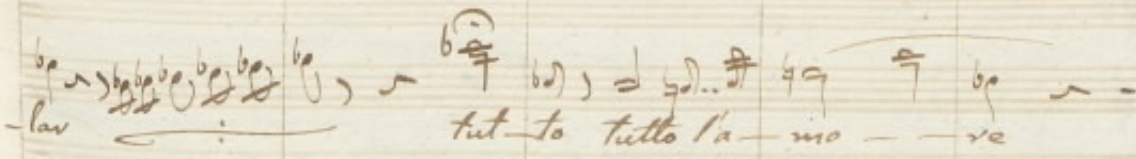 -lar tut-to tutto l'a-mo--re